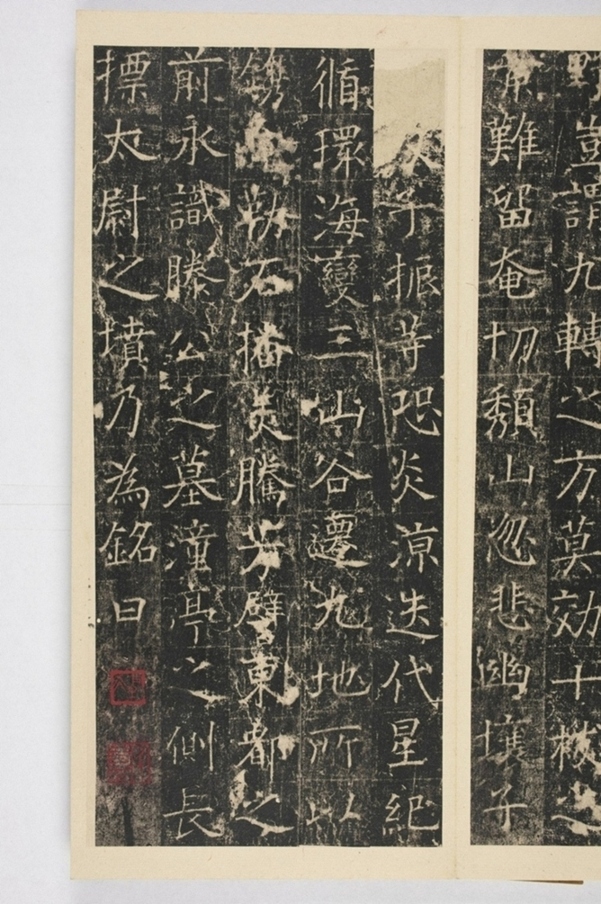 豈謂九轉之方莫効十枝之
難留奄切頹山忽悲幽壤子
子振等恐炎涼迭代星紀
循環海變三山谷遷九地所以
鐫金勒石播美騰芳譬東都之
前永識滕公之墓潼亭之側長
摽太尉之墳乃為銘曰